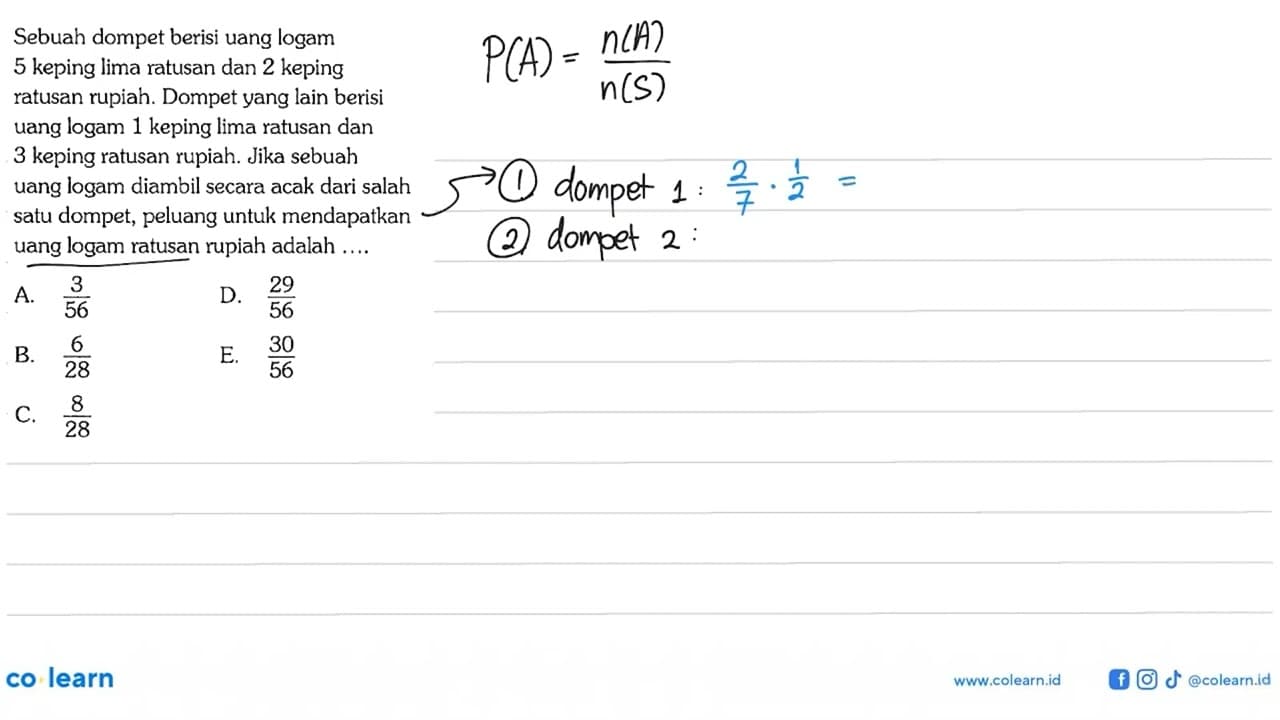 Sebuah dompet berisi uang logam
5 keping lima ratusan dan 2 keping
ratusan rupiah. Dompet yang lain berisi
uang logam 1 keping lima ratusan dan
3 keping ratusan rupiah. Jika sebuah
uang logam diambil secara acak dari salah
satu dompet, peluang untuk mendapatkan
uang logam ratusan rupiah adalah ....
A. 3/56 D. 29/56
B. 6/28 E. 30/56
C. 8/28
P(A) = n(A)/n(S)
① dompet 1 : 2/7 · 1/2 =
② dompet 2 :
co learn
www.colearn.id
@colearn.id